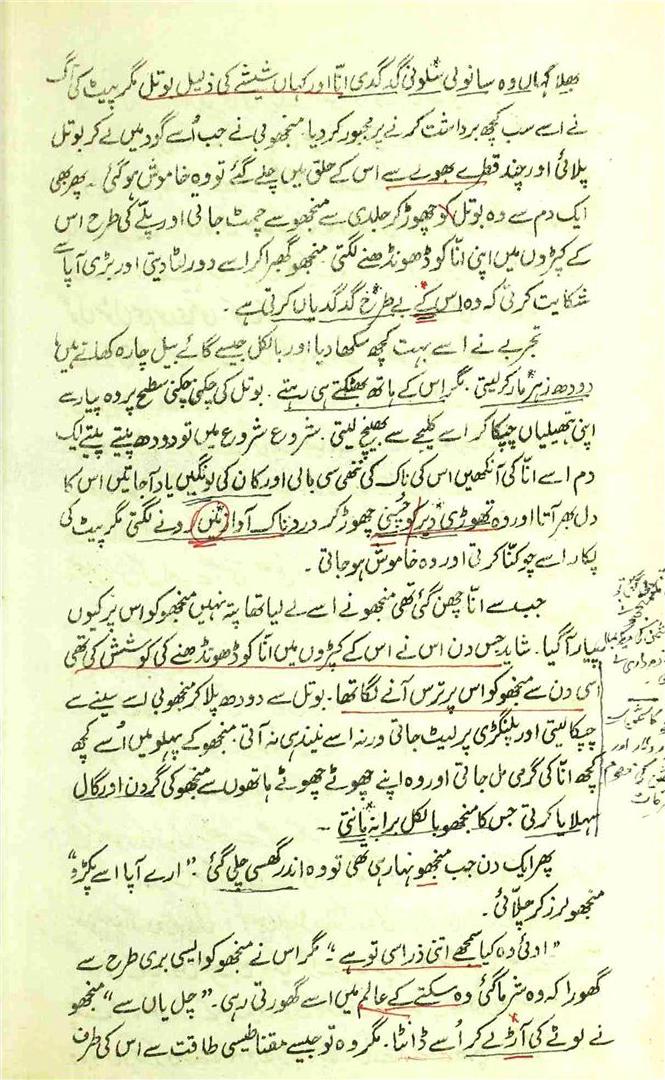 بھلا کہاں وہ سانولی سلونی گدگدی انّا اور کہاں شیشے کی ذلیل بوتل مگر پیٹ کی آگ
نے اسے سب کچھ برداشت کرنے پر مجبور کر دیا۔ منجھو بی نے جب اُسے گود میں لے کر بوتل
پلائی اور چند قطرے بھورے سے اس کے حلق میں چلے گئے تو وہ خاموش ہو گئی۔ پھر بھی
ایک دم سے وہ بوتل کو چھوڑ کر جلدی سے منجھو سے چمٹ جاتی اور پلّے کی طرح اس
کے کپڑوں میں اپنی انّا کو ڈھونڈھنے لگتی۔ منجھو گھبرا کر اسے دور لٹا دیتی اور بڑی آپا سے
شکایت کرتی کہ وہ اس کے بے طرح گدگدیاں کرتی ہے۔
تجربے نے اسے بہت کچھ سکھا دیا اور بالکل جیسے گائے بیل چارہ کھاتے ہیں
دودھ زہر مار کر لیتی۔ مگر اس کے ہاتھ بھٹکتے ہی رہتے۔ بوتل کی چکنی چکنی سطح پر وہ پیار سے
اپنی ہتھیلیاں چپکا کر اسے کلیجے سے بھینچ لیتی۔ شروع شروع میں تو دودھ پیتے پیتے ایک
دم اسے انّا کی آنکھیں اس کی ناک کی ننھی سی بالی اور کان کی لونگیں یاد آ جاتیں اس کا
دل بھر آتا اور وہ تھوڑی دیر کو چُسنی چھوڑ کر دردناک آواز میں رونے لگتی مگر پیٹ کی
پکار اسے چوکنّا کرتی اور وہ خاموش ہو جاتی۔
جب سے انّا چھن گئی تھی منجھو نے اسے لے لیا تھا پتہ نہیں منجھو کو اس پر کیوں
پیار آ گیا۔ شاید جس دن اس نے اس کے کپڑوں میں انّا کو ڈھونڈھنے کی کوشش کی تھی
اسی دن سے منجھو کو اس پر ترس آنے لگا تھا۔ بوتل سے دودھ پلا کر منجھو بی اسے سینے سے
چپکا لیتی اور پلنگڑی پر لیٹ جاتی ورنہ اسے نیند ہی نہ آتی۔ منجھو کے پہلو میں اُسے کچھ
کچھ انّا کی گرمی مل جاتی اور وہ اپنے چھوٹے چھوٹے ہاتھوں سے منجھو کی گردن اور گال
سہلایا کرتی جس کا منجھو بالکل برا نہ مانتی۔
پھر ایک دن جب منجھو نہا رہی تھی تو وہ اندر گھسی چلی گئی۔ "ارے آپا اسے پکڑو"
منجھو لرز کر چلّائی۔
"اوئی وہ کیا سمجھے اتنی ذرا سی تو ہے"۔ مگر اس نے منجھو کو ایسی بری طرح سے
گھورا کہ وہ شرما گئی وہ سکتے کے عالم میں اسے گھورتی رہی۔ "چل یاں سے" منجھو
نے لوٹے کی آڑ لے کر اُسے ڈانٹا۔ مگر وہ تو جیسے مقناطیسی طاقت سے اس کی طرف